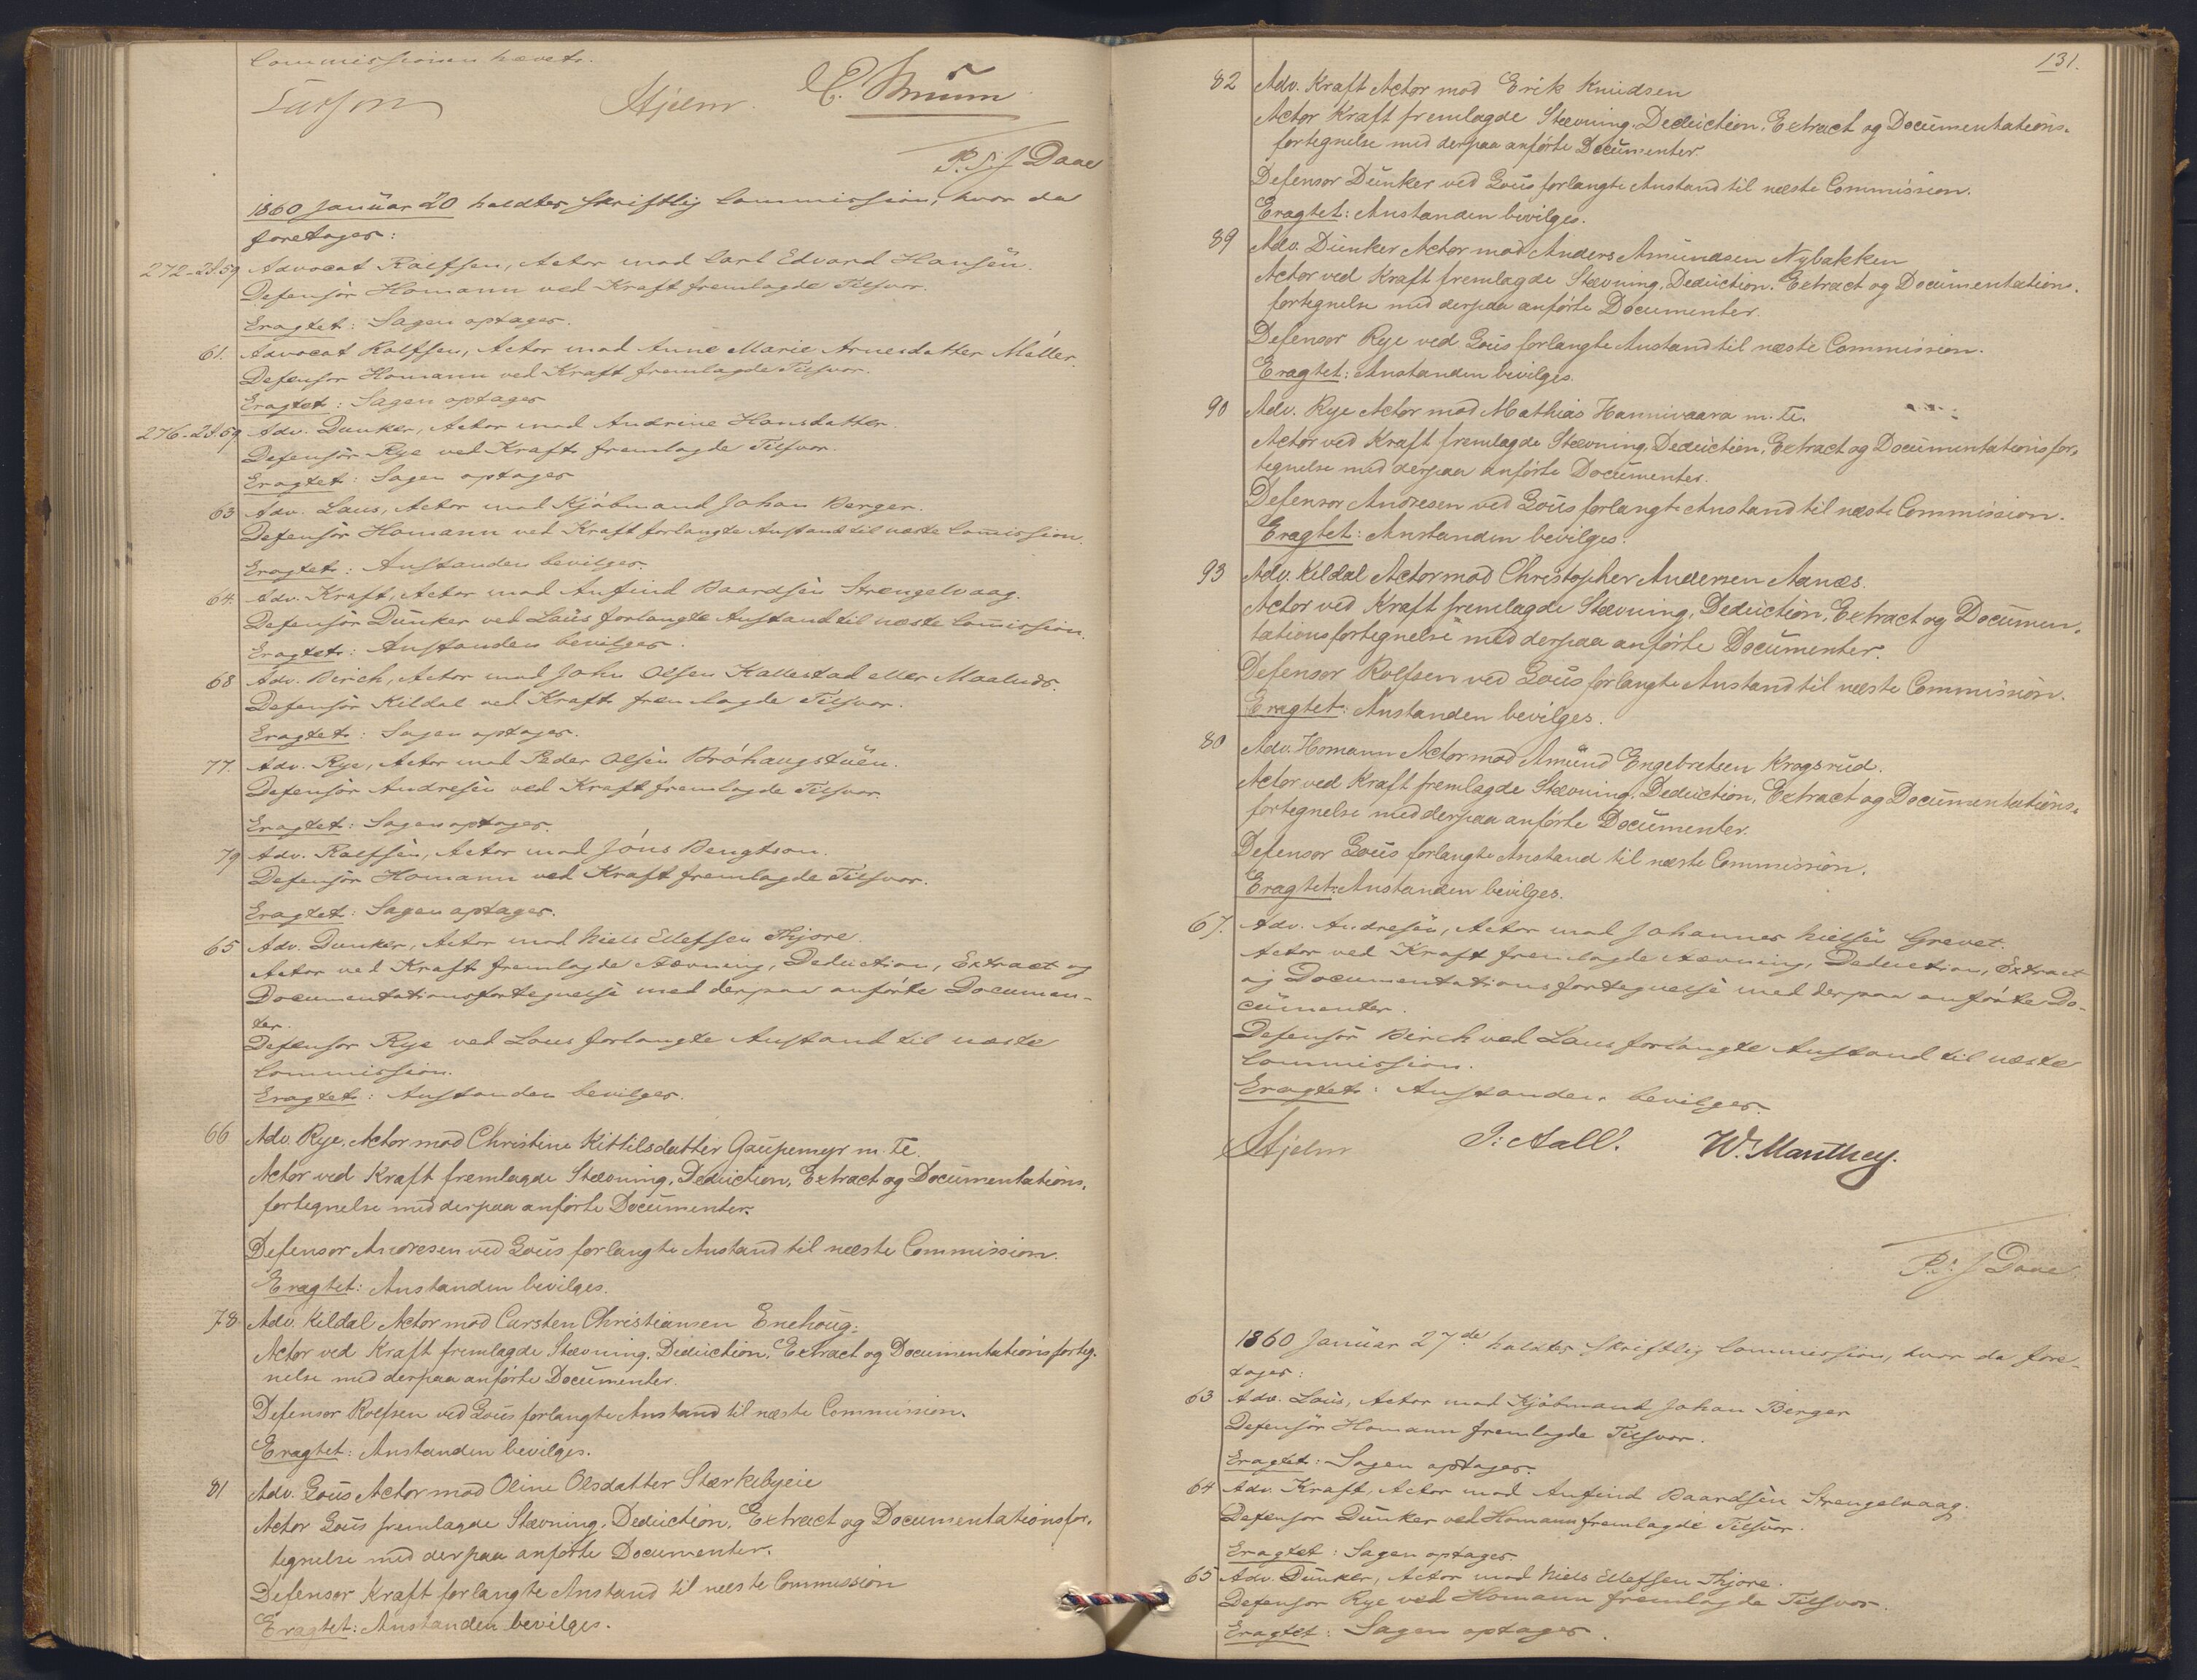 Commissionen hævet.
Lasson Hjelm C. Munm
P. S. J Daae
1860 Januar 20 holdtes skriftlig Commission, hvor da
foretoges:
272-2d.59 Advocat Rolfsen, Actor mod Carl Edvard Hansen.
Defensor Homann ved Kraft fremlagde Tilsvar.
Eragtet: Sagen optages.
61. Advocat Rolfsen, Actor mod Anne Marie Arnesdatter Møller.
Defensor Homann ved Kraft fremlagde Tilsvar.
Eragtet: Sagen optages
276-2d.59 Adv. Dunker, Actor mod Andrine Hansdatter.
Defensor Rye ved Kraft fremlagde Tilsvar.
Eragtet: Sagen optages
63 Adv. Lous, Actor mod Kjøbmand Johan Berger.
Defensor Homann ved Kraft forlangte Anstand til næste Commission.
Eragtet: Anstanden bevilges.
64. Adv. Kraft, Actor mod Anfind Baardsen Strengelvaag.
Defensor Dunker ved Lous forlangte Anstand til næste Commission.
Eragtet: Anstanden bevilges.
68 Adv. Birch, Actor mod John Olsen Kallestad eller Maalnes.
Defensor Kildal ved Kraft fremlagde Tilsvar.
Eragtet: Sagen optages.
77. Adv. Rye, Actor mod Peder Olsen Brøhaugstuen.
Defensor Andresen ved Kraft fremlagde Tilsvar.
Eragtet: Sagen optages.
79 Adv. Rolfsen, Actor mod Jóns Bengtson.
Defensor Homann ved Kraft fremlagde Tilsvar.
Eragtet: Sagen optages.
65 Adv. Dunker, Actor mod Niels Ellefsen Thjøre.
Actor ved Kraft fremlagde Stævning, Deduction, Extract og
Documentationsfortegnelse med derpaa anførte Documen-
ter.
Defensor Rye ved Lous forlangte Anstand til næste
Commission.
Eragtet: Anstanden bevilges.
66 Adv. Rye, Actor mod Christine Kittilsdatter Gaupemyr m. Fl.
Actor ved Kraft fremlagde Stævning, Deduction, Extract og Documentations,
fortegnelse med derpaa anførte Documenter.
Defensor Andresen ved Lous forlangte Anstand til næste Commission.
Eragtet: Anstanden bevilges.
78 Adv. Kildal Actor mod Carsten Christiansen Enehoug.
Actor ved Kraft fremlagde Stævning, Deduction, Extract og Documentationsforteg.
nelse med derpaa anførte Documenter.
Defensor Rolfsen ved Lous forlangte Anstand til næste Commission.
Eragtet: Anstanden bevilges.
81 Adv. Lous Actor mod Oline Olsdatter Stærkebyeie
Actor Lous fremlagde Stævning, Deduction, Extract og Documentationsfor,
tegnelse med derpaa anførte Documenter.
Defensor Kraft forlangte Anstand til næste Commission
Eragtet: Anstanden bevilges.
131.
82 Adv. Kraft Actor mod Erik Knudsen
Actor Kraft fremlagde Stævning, Deduction, Extract og Documentations,
fortegnelse med derpaa anførte Documenter.
Defensor Dunker ved Lous forlangte Anstand til næste Commission.
Eragtet: Anstanden bevilges.
89 Adv. Dunker Actor mod Anders Amundsen Nybakken
Actor ved Kraft fremlagde Stævning, Deduction, Extract og Documentations,
fortegnelse med derpaa anførte Documenter.
Defensor Rye ved Lous forlangte Anstand til næste Commission.
Eragtet: Anstanden bevilges.
90 Adv. Rye Actor mod Mathias Hannivaara m. Fl.
Actor ved Kraft fremlagde Stævning, Deduction, Extract og Documentationsfor,
tegnelse med derpaa anførte Documenter.
Defensor Andresen ved Lous forlangte Anstand til næste Commission.
Eragtet: Anstanden bevilges.
93 Adv. Kildal Actor mod Christopher Andersen Aanæs.
Actor ved Kraft fremlagde Stævning, Deduction, Extract og Documen,
tationsfortegnelse med derpaa anførte Documenter.
Defensor Rolfsen ved Lous forlangte Anstand til næste Commission.
Eragtet: Anstanden bevilges.
80 Adv. Homann Actor mod Amund Engebretsen Krogsrud.
Actor ved Kraft fremlagde Stævning, Deduction, Extract og Documentations,
fortegnelse med derpaa anførte Documenter.
Defensor Lous forlangte Anstand til næste Commission.
Eragtet: Anstanden bevilges.
67. Adv. Andresen, Actor mod Johannes Nielsen Grevet.
Actor ved Kraft fremlagde Stævning, Deduction, Extract
og Documentationsfortegnelse med derpaa anførte Do-
cumenter.
Defensor Birch ved Lous forlangte Anstand til næste
Commission.
Eragtet: Anstanden bevilges.
Hjelm J. Aall. W. Manthey.
P. S. J Daae
1860 Januar 27de holdtes skriftlig Commission, hvor da fore-
toges:
63 Adv. Lous, Actor mod Kjøbmand Johan Berger
Defensor Homann fremlagde Tilsvar.
Eragtet: Sagen optages.
64 Adv. Kraft, Actor mod Anfind Baardsen Strengelvaag.
Defensor Dunker ved Homann fremlagde Tilsvar.
Eragtet: Sagen optages.
65 Adv. Dunker, Actor mod Niels Ellefsen Thjøre.
Defensor Rye ved Homann fremlagde Tilsvar.
Eragtet: Sagen optages.